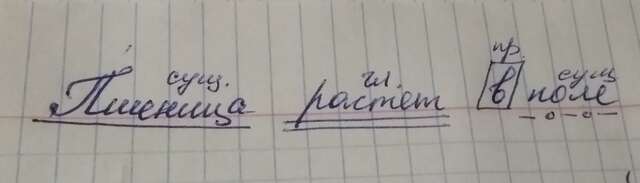 сущ. гл. пр. сущ
Пшеница растет в поле